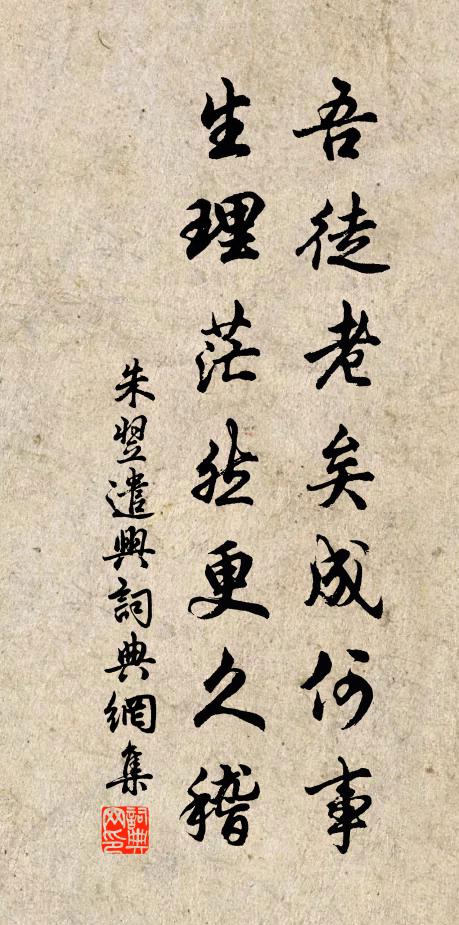 吾徒老矣成何事
生理茫然更久稽
朱翌遣興詞典網集
詞典网印